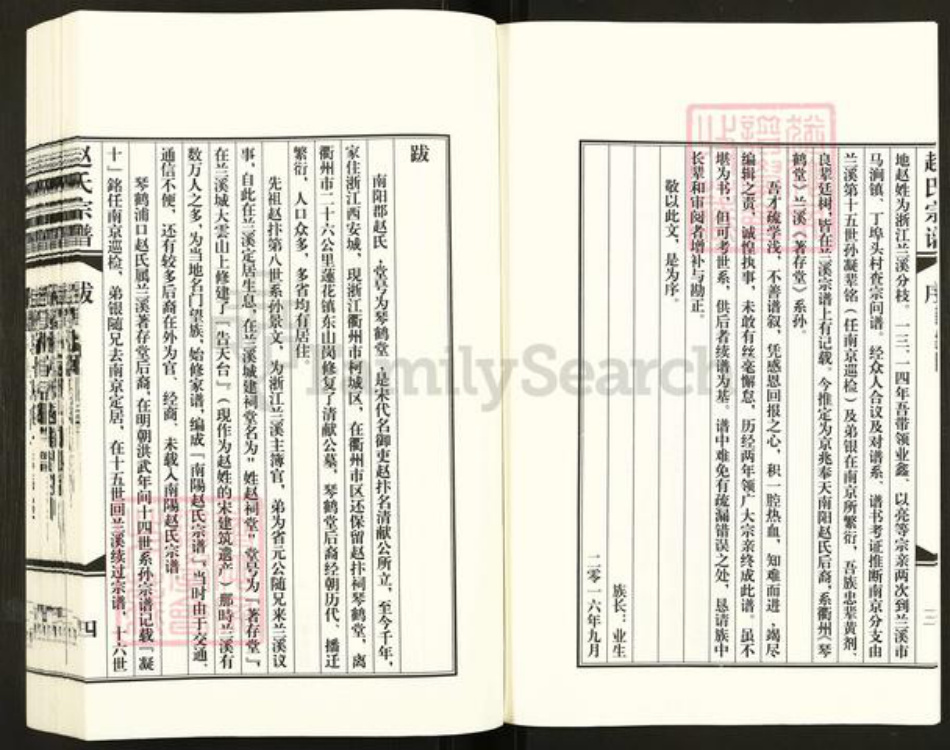 赵氏宗谱 序
地赵姓为浙江兰溪分枝。一三、一四年吾带领业鑫、以亮等宗亲两次到兰溪市
马涧镇、丁埠头村查宗问谱。经众人合议及对谱系、谱书考证推断南京分支由
兰溪第十五世孙凝辈铭（任南京巡检）及弟银在南京所繁衍，吾族忠辈黄剂、
良辈廷树，皆在兰溪宗谱上有记载。今推定为京兆奉天南阳赵氏后裔，系衢州《琴
鹤堂》兰溪《著存堂》系孙。
吾才疏学浅，不善谱叙，凭感恩回报之心，积一腔热血，知难而进，竭尽
编辑之责，诚惶执事，未敢有丝毫懈怠，历经两年领广大宗亲终成此谱。虽不
堪为书，但可考世系，供后者续谱为基。谱中难免有疏漏错误之处，恳请族中
长辈和审阅者增补与勘正。
敬以此文，是为序。
族长：业生
二零一六年九月
跋
南阳郡赵氏，堂号为琴鹤堂，是宋代名御吏赵抃名清献公所立，至今千年，
家住浙江西安城，現浙江衢州市柯城区，在衢州市区还保留赵抃祠琴鹤堂，离
衢州市二十六公里蓮花镇东山岗修复了清献公墓，琴鹤堂后裔经朝历代，播迁
繁衍，人口众多，多省均有居住。
先祖赵抃第八世系孙景文，为浙江兰溪主簿官，弟为省元公随兄来兰溪议
事，自此在兰溪定居生息，在兰溪城建祠堂名为"姓赵祠堂"堂号为『著存堂』，
在兰溪城大雲山上修建了『告天台』（現作为赵姓的宋建筑遗产）那時兰溪有
数万人之多，为当地名门望族，始修家谱，编成『南陽赵氏宗谱』，当时由于交通、
通信不便，还有较多后裔在外为官、经商，未载入南陽赵氏宗谱
琴鹤浦口赵氏属兰溪著存堂后裔，在明朝洪武年间十四世系孙宗谱记载『凝
十』銘任南京巡检，弟银随兄去南京定居，在十五世回兰溪续过宗谱，十六世
赵氏宗谱 跋
四
FamilySearch